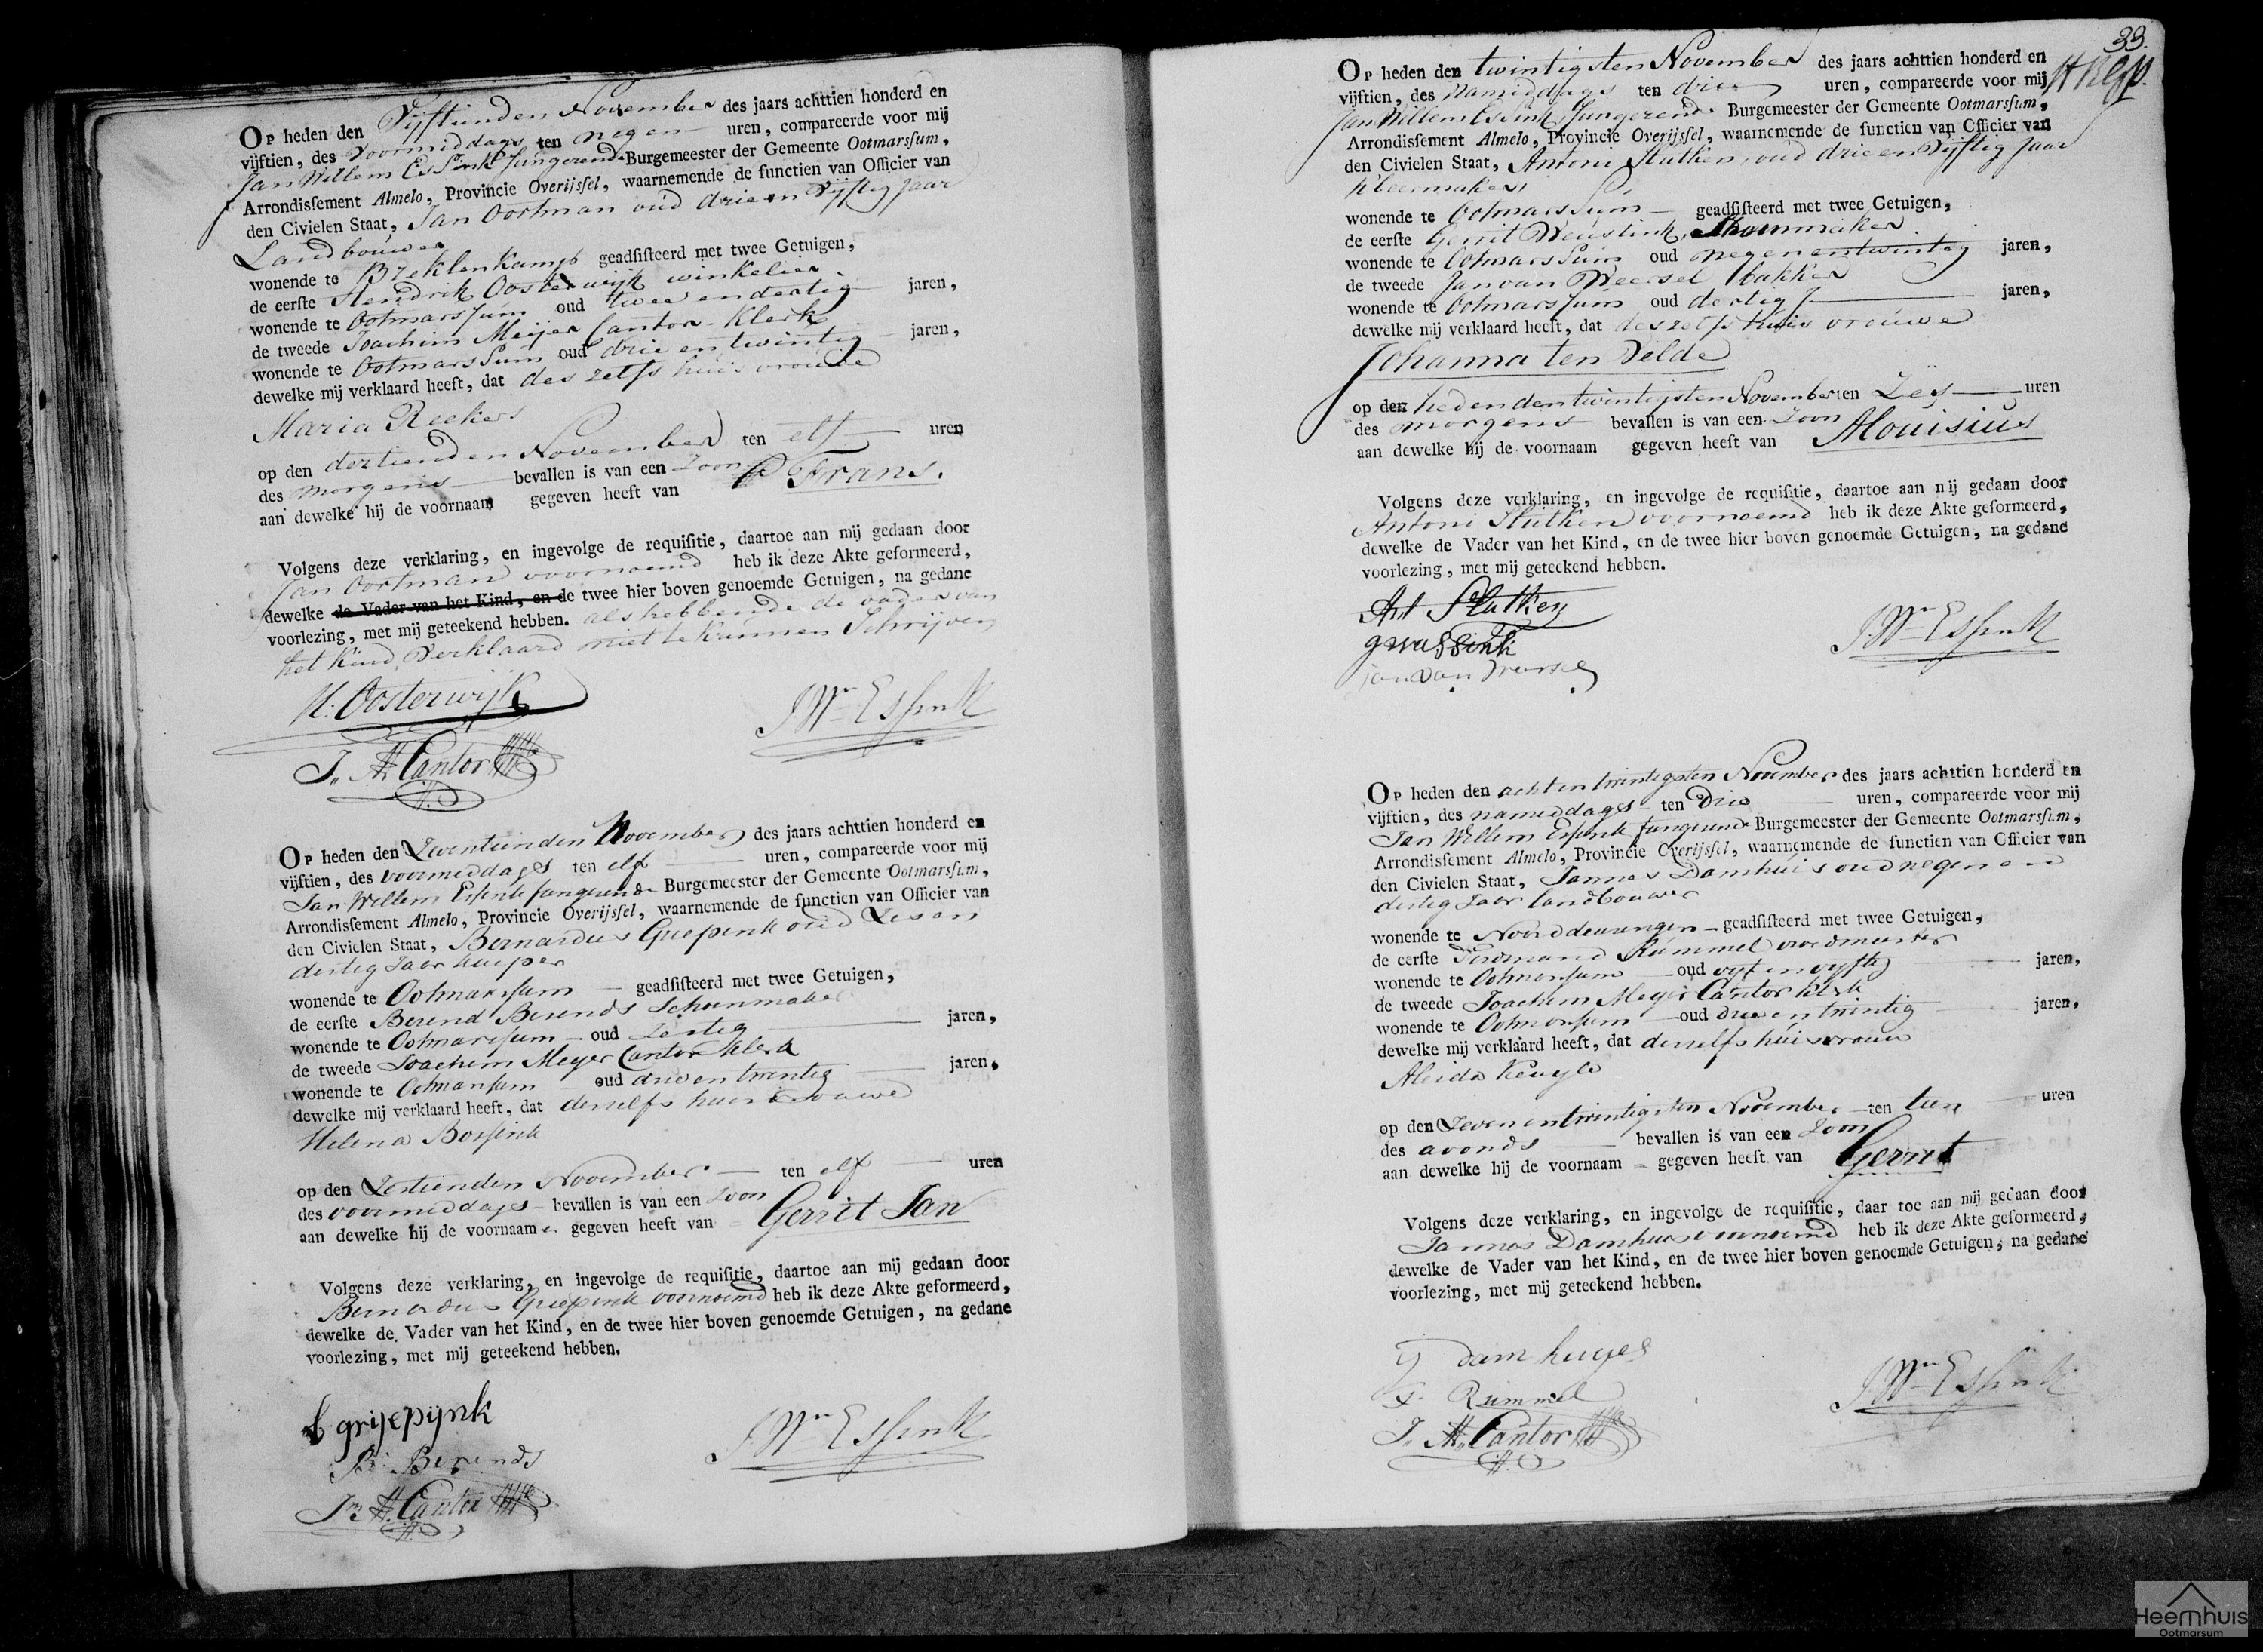 Op heden den Vijftienden November des jaars achttien honderd en
vijftien, des Voormiddags ten negen uren, compareerde voor mij
Jan Willem Essink fungerende Burgemeester der Gemeente Ootmarssum,
Arrondissement Almelo, Provincie Overijssel, waarnemende de functien van Officier van
den Civielen Staat, Jan Oortman oud drie en Vijftig Jaar
Landbouwer
wonende te Breklenkamp geadsisteerd met twee Getuigen,
de eerste Hendrik Oosterwijk winkelier
wonende te Ootmarssum oud twee en dertig jaren,
de tweede Joachim Meijer Cantor - Klerk
wonende te Ootmarssum oud drie en twintig jaren,
dewelke mij verklaard heeft, dat deszelfs huisvrouwe
Maria Riekers
op den dertienden November ten elf uren
des morgens bevallen is van een Zoon
aan dewelke hij de voornaam gegeven heeft van Frans.
Volgens deze verklaring, en ingevolge de requisitie, daartoe aan mij gedaan door
Jan Oortman voornoemd heb ik deze Akte geformeerd,
dewelke de Vader van het Kind, en de twee hier boven genoemde Getuigen, na gedane
voorlezing, met mij geteekend hebben. als hebbende de vader van
het Kind Verklaard niet te Kunnen Schrijven
H. Oosterwijk
JWm Essink
J. M. Cantor
Op heden den Zeventienden November des jaars achttien honderd en
vijftien, des voormiddags ten elf uren, compareerde voor mij
Jan Willem Essink fungerende Burgemeester der Gemeente Ootmarssum,
Arrondissement Almelo, Provincie Overijssel, waarnemende de functien van Officier van
den Civielen Staat, Bernardus Griepink oud Zes en
dertig Jaar kuiper
wonende te Ootmarssum geadsisteerd met twee Getuigen,
de eerste Berend Berends Schoenmaker
wonende te Ootmarssum oud Zestig jaren,
de tweede Joachim Meyer Cantor klerk
wonende te Ootmarssum oud drie en twintig jaren,
dewelke mij verklaard heeft, dat deszelfs huisvrouwe
Helena Bossink
op den Zestienden November ten elf uren
des voormiddags bevallen is van een Zoon
aan dewelke hij de voornaam en gegeven heeft van Gerrit Jan
Volgens deze verklaring, en ingevolge de requisitie, daartoe aan mij gedaan door
Bernardus Griepink voornoemd heb ik deze Akte geformeerd,
dewelke de Vader van het Kind, en de twee hier boven genoemde Getuigen, na gedane
voorlezing, met mij geteekend hebben.
b grijepijnk
B: Berends
JWm Essink
J. M. Cantor
33.
Op heden den twintigsten November des jaars achttien honderd en
vijftien, des Namiddags ten drie uren, compareerde voor mij
Jan Willem Essink, fungerende Burgemeester der Gemeente Ootmarssum,
Arrondissement Almelo, Provincie Overijssel, waarnemende de functien van Officier van
den Civielen Staat, Antoni Stutken, oud drie en Vijftig Jaar
Kleermaker
wonende te Ootmarssum geadsisteerd met twee Getuigen,
de eerste Gerrit Weusink, Schoenmaker
wonende te Ootmarssum oud negenentwintig jaren,
de tweede Jan van Weersel bakker
wonende te Ootmarssum oud dertig jaren,
dewelke mij verklaard heeft, dat deszelfs huisvrouwe
Johanna ten Velde
op den heden den twintigsten November ten Zes uren
des morgens bevallen is van een Zoon
aan dewelke hij de voornaam gegeven heeft van Alouisius
Volgens deze verklaring, en ingevolge de requisitie, daartoe aan mij gedaan door
Antoni Stutken voornoemd heb ik deze Akte geformeerd,
dewelke de Vader van het Kind, en de twee hier boven genoemde Getuigen, na gedane
voorlezing, met mij geteekend hebben.
Ant Stutken
JWm Essink
jan van
Op heden den achtentwintigsten November des jaars achttien honderd en
vijftien, des namiddags ten Drie uren, compareerde voor mij
Jan Willem Essink fungerende Burgemeester der Gemeente Ootmarssum,
Arrondissement Almelo, Provincie Overijssel, waarnemende de functien van Officier van
den Civielen Staat, Jannes Damhuis oud negen en
dertig Jaar landbouwer
wonende te Noorddeurningen geadsisteerd met twee Getuigen,
de eerste Ferdinand Rümmel vroedmeester
wonende te Ootmarssum oud vyf en vyftig jaren,
de tweede Joachim Meyer Cantor klerk
wonende te Ootmarssum oud drie en twintig jaren,
dewelke mij verklaard heeft, dat deszelfs huisvrouw
Aleida
op den Zevenentwintigsten November ten tien uren
des avonds bevallen is van een Zoon
aan dewelke hij de voornaam gegeven heeft van Gerrit
Volgens deze verklaring, en ingevolge de requisitie, daar toe aan mij gedaan door
Jannes Damhuis voornoemd heb ik deze Akte geformeerd,
dewelke de Vader van het Kind, en de twee hier boven genoemde Getuigen, na gedane
voorlezing, met mij geteekend hebben.
J damhuyes
F. Rummel
JWm Essink
J. M. Cantor
Heemhuis
Ootmarsum